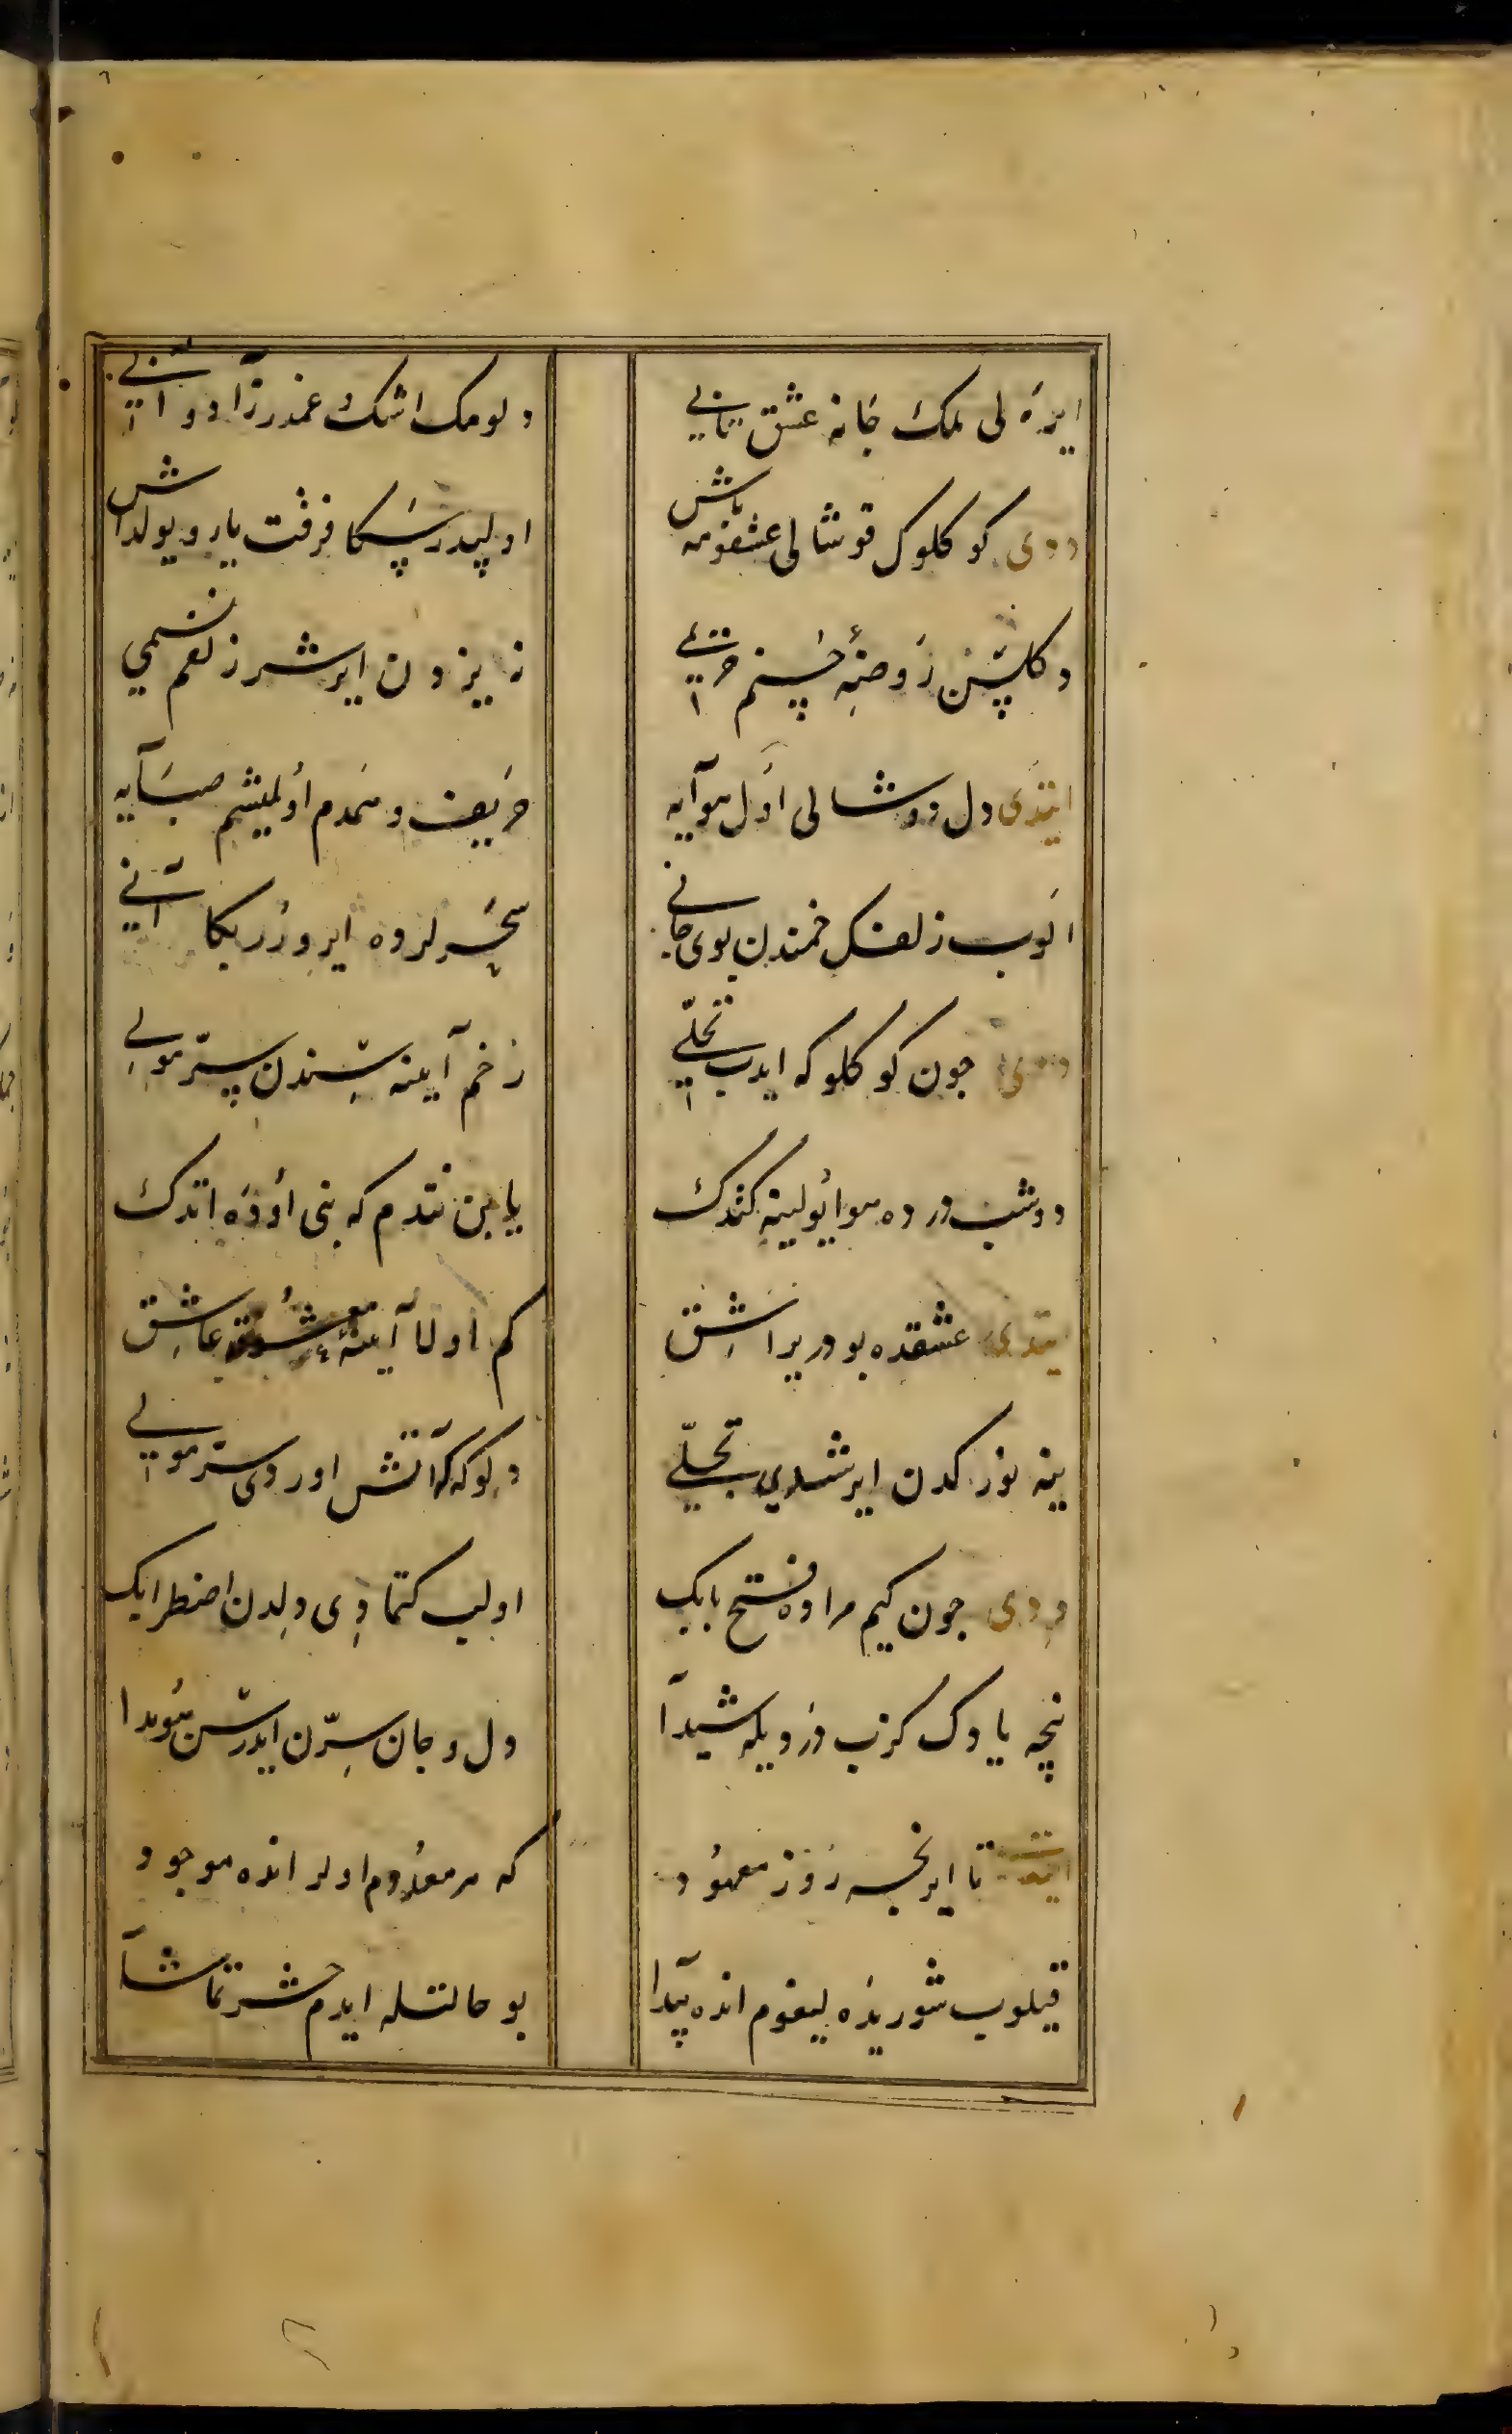 ایره لی ملک جانه عشق یانی
دلومک اشک غمدر زاد و آنی
ددی کوکلوک قوشالی عشقومه باش
اولپدر سکا فرقت یار و یولداش
دکلسن روضهٔ حسنم حریمی
نیزدن ایرشر زلفم نسیمی
ایتدی دل دوشالی اول هوآیه
حریف و همدم اولمیشم صبآیه
الوب زلفک خمندن بوی جانی
سحرلرده ایرورر بکا آنی
ددی چون کوکلوکه ایدب تجلی
رخم آینه سندن سر مولی
دوشب درده هوا یولینه کتدک
یا بن نتدم که بنی اوده اتدک
ایتدی عشقده بودر یراشق
کم اولا آینهٔ معشوق عاشق
ینه نورکدن ایرشدی تجلی
دلوکه آتش اوردی سر مولی
ددی چون کیم مراده فتح بابک
اولیب کتمادی دلدن اضطرابک
نچه یادک کزب دردیله شیدآ
دل و جان سرن ایدرسن هویدا
تا ایرنجه روز معهود
که هر معدوم اولر انده موجود
قیلوب شوریده لیغوم انده پیدا
بو حالتله ایدم حشر تماشآ